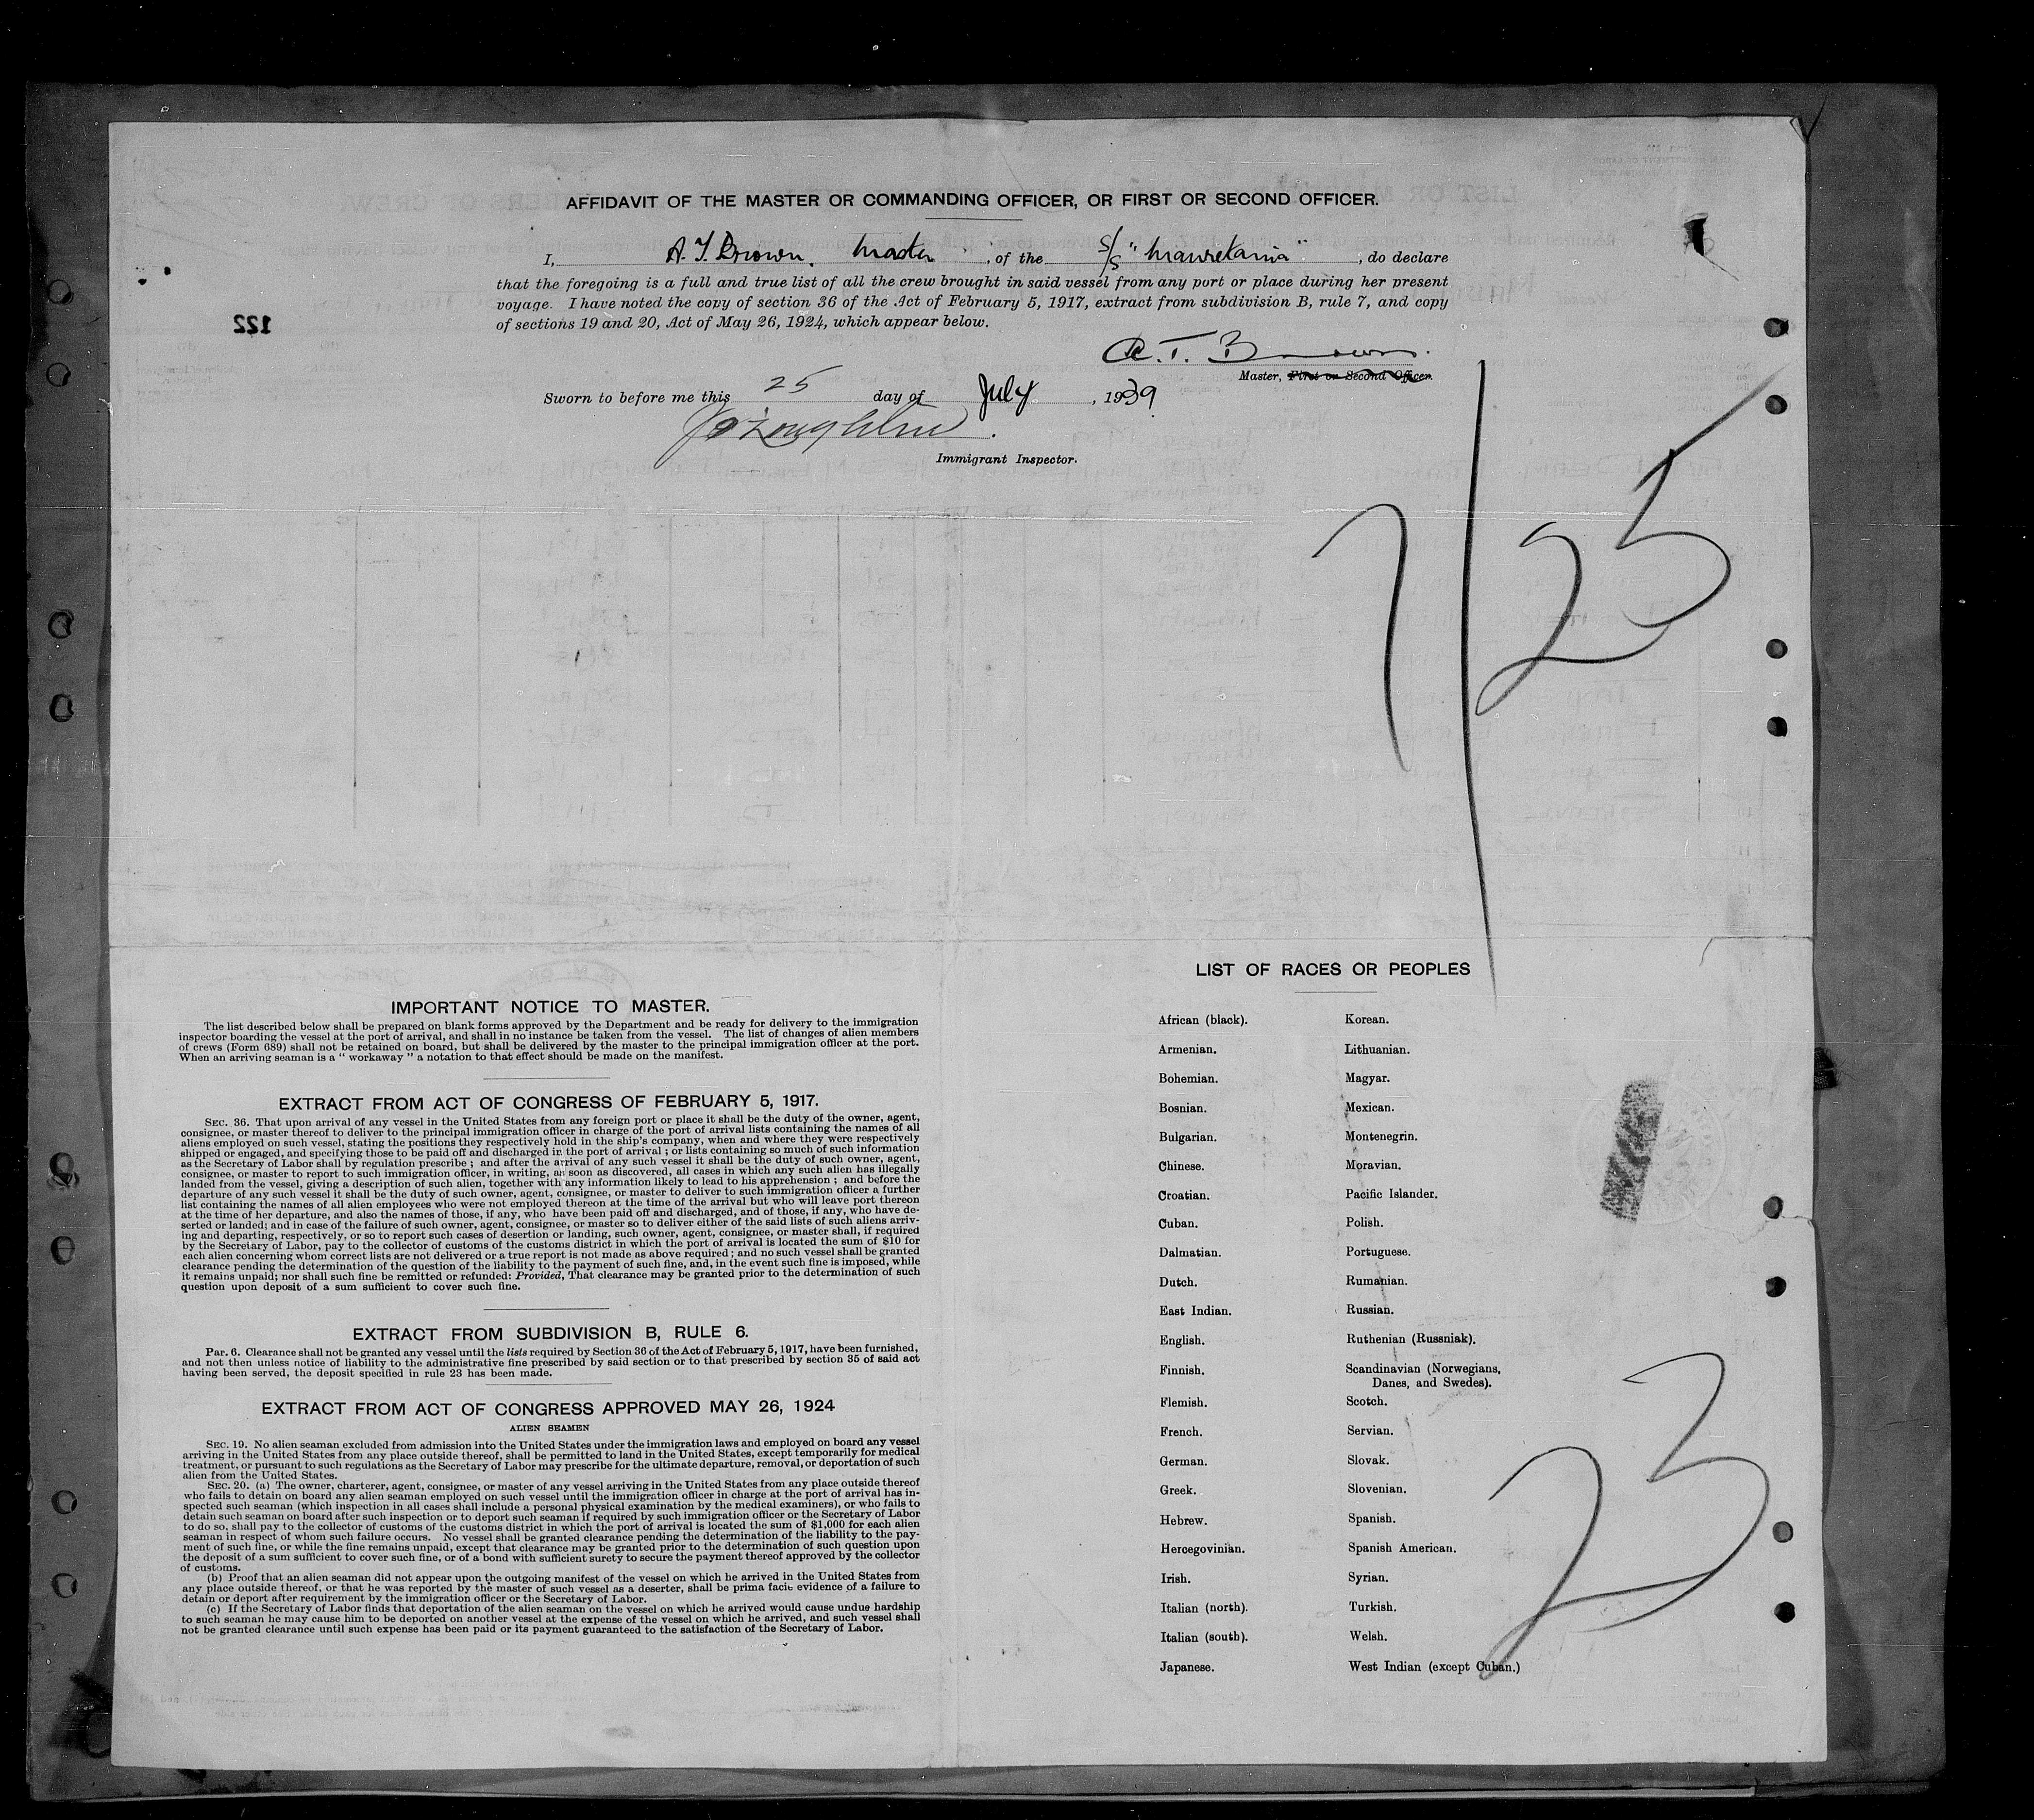 AFFIDAVIT OF THE MASTER OR COMMANDING OFFICER, OR FIRST OR SECOND OFFICER.
I, A. T. Brown. Master, of the S/S "Mauretania", do declare
that the foregoing is a full and true list of all the crew brought in said vessel from any port or place during her present
voyage. I have noted the copy of section 36 of the Act of February 5, 1917, extract from subdivision B, rule 7, and copy
of sections 19 and 20, Act of May 26, 1924, which appear below.
122
A. T. Brown.
Master, First or Second Officer.
Sworn to before me this 25 day of July, 1939
Immigrant Inspector.
7/25
IMPORTANT NOTICE TO MASTER.
The list described below shall be prepared on blank forms approved by the Department and be ready for delivery to the immigration
inspector boarding the vessel at the port of arrival, and shall in no instance be taken from the vessel. The list of changes of alien members
of crews (Form 689) shall not be retained on board, but shall be delivered by the master to the principal immigration officer at the port.
When an arriving seaman is a " workaway " a notation to that effect should be made on the manifest.
EXTRACT FROM ACT OF CONGRESS OF FEBRUARY 5, 1917.
SEC. 36. That upon arrival of any vessel in the United States from any foreign port or place it shall be the duty of the owner, agent,
consignee, or master thereof to deliver to the principal immigration officer in charge of the port of arrival lists containing the names of all
aliens employed on such vessel, stating the positions they respectively hold in the ship's company, when and where they were respectively
shipped or engaged, and specifying those to be paid off and discharged in the port of arrival ; or lists containing so much of such information
as the Secretary of Labor shall by regulation prescribe ; and after the arrival of any such vessel it shall be the duty of such owner, agent,
consignee, or master to report to such immigration officer, in writing, as soon as discovered, all cases in which any such alien has illegally
landed from the vessel, giving a description of such alien, together with any information likely to lead to his apprehension ; and before the
departure of any such vessel it shall be the duty of such owner, agent, consignee, or master to deliver to such immigration officer a further
list containing the names of all alien employees who were not employed thereon at the time of the arrival but who will leave port thereon
at the time of her departure, and also the names of those, if any, who have been paid off and discharged, and of those, if any, who have de-
serted or landed; and in case of the failure of such owner, agent, consignee, or master so to deliver either of the said lists of such aliens arriv-
ing and departing, respectively, or so to report such cases of desertion or landing, such owner, agent, consignee, or master shall, if required
by the Secretary of Labor, pay to the collector of customs of the customs district in which the port of arrival is located the sum of $10 for
each alien concerning whom correct lists are not delivered or a true report is not made as above required ; and no such vessel shall be granted
clearance pending the determination of the question of the liability to the payment of such fine, and, in the event such fine is imposed, while
it remains unpaid; nor shall such fine be remitted or refunded: Provided, That clearance may be granted prior to the determination of such
question upon deposit of a sum sufficient to cover such fine.
EXTRACT FROM SUBDIVISION B, RULE 6.
Par. 6. Clearance shall not be granted any vessel until the lists required by Section 36 of the Act of February 5, 1917, have been furnished,
and not then unless notice of liability to the administrative fine prescribed by said section or to that prescribed by section 35 of said act
having been served, the deposit specified in rule 23 has been made.
EXTRACT FROM ACT OF CONGRESS APPROVED MAY 26, 1924
ALIEN SEAMEN
SEC. 19. No alien seaman excluded from admission into the United States under the immigration laws and employed on board any vessel
arriving in the United States from any place outside thereof, shall be permitted to land in the United States, except temporarily for medical
treatment, or pursuant to such regulations as the Secretary of Labor may prescribe for the ultimate departure, removal, or deportation of such
alien from the United States.
SEC. 20. (a) The owner, charterer, agent, consignee, or master of any vessel arriving in the United States from any place outside thereof
who fails to detain on board any alien seaman employed on such vessel until the immigration officer in charge at the port of arrival has in-
spected such seaman (which inspection in all cases shall include a personal physical examination by the medical examiners), or who fails to
detain such seaman on board after such inspection or to deport such seaman if required by such immigration officer or the Secretary of Labor
to do so, shall pay to the collector of customs of the customs district in which the port of arrival is located the sum of $1,000 for each alien
seaman in respect of whom such failure occurs. No vessel shall be granted clearance pending the determination of the liability to the pay-
ment of such fine, or while the fine remains unpaid, except that clearance may be granted prior to the determination of such question upon
the deposit of a sum sufficient to cover such fine, or of a bond with sufficient surety to secure the payment thereof approved by the collector
of customs.
(b) Proof that an alien seaman did not appear upon the outgoing manifest of the vessel on which he arrived in the United States from
any place outside thereof, or that he was reported by the master of such vessel as a deserter, shall be prima facie evidence of a failure to
detain or deport after requirement by the immigration officer or the Secretary of Labor.
(c) If the Secretary of Labor finds that deportation of the alien seaman on the vessel on which he arrived would cause undue hardship
to such seaman he may cause him to be deported on another vessel at the expense of the vessel on which he arrived, and such vessel shall
not be granted clearance until such expense has been paid or its payment guaranteed to the satisfaction of the Secretary of Labor.
LIST OF RACES OR PEOPLES
African (black). Korean.
Armenian. Lithuanian.
Bohemian. Magyar.
Bosnian. Mexican.
Bulgarian. Montenegrin.
Chinese. Moravian.
Croatian. Pacific Islander.
Cuban. Polish.
Dalmatian. Portuguese.
Dutch. Rumanian.
East Indian. Russian.
English. Ruthenian (Russniak).
Finnish. Scandinavian (Norwegians,
Danes, and Swedes).
Flemish. Scotch.
French. Servian.
German. Slovak.
Greek. Slovenian.
Hebrew. Spanish.
Hercegovinian. Spanish American.
Irish. Syrian.
Italian (north). Turkish.
Italian (south). Welsh.
Japanese. West Indian (except Cuban.)
23